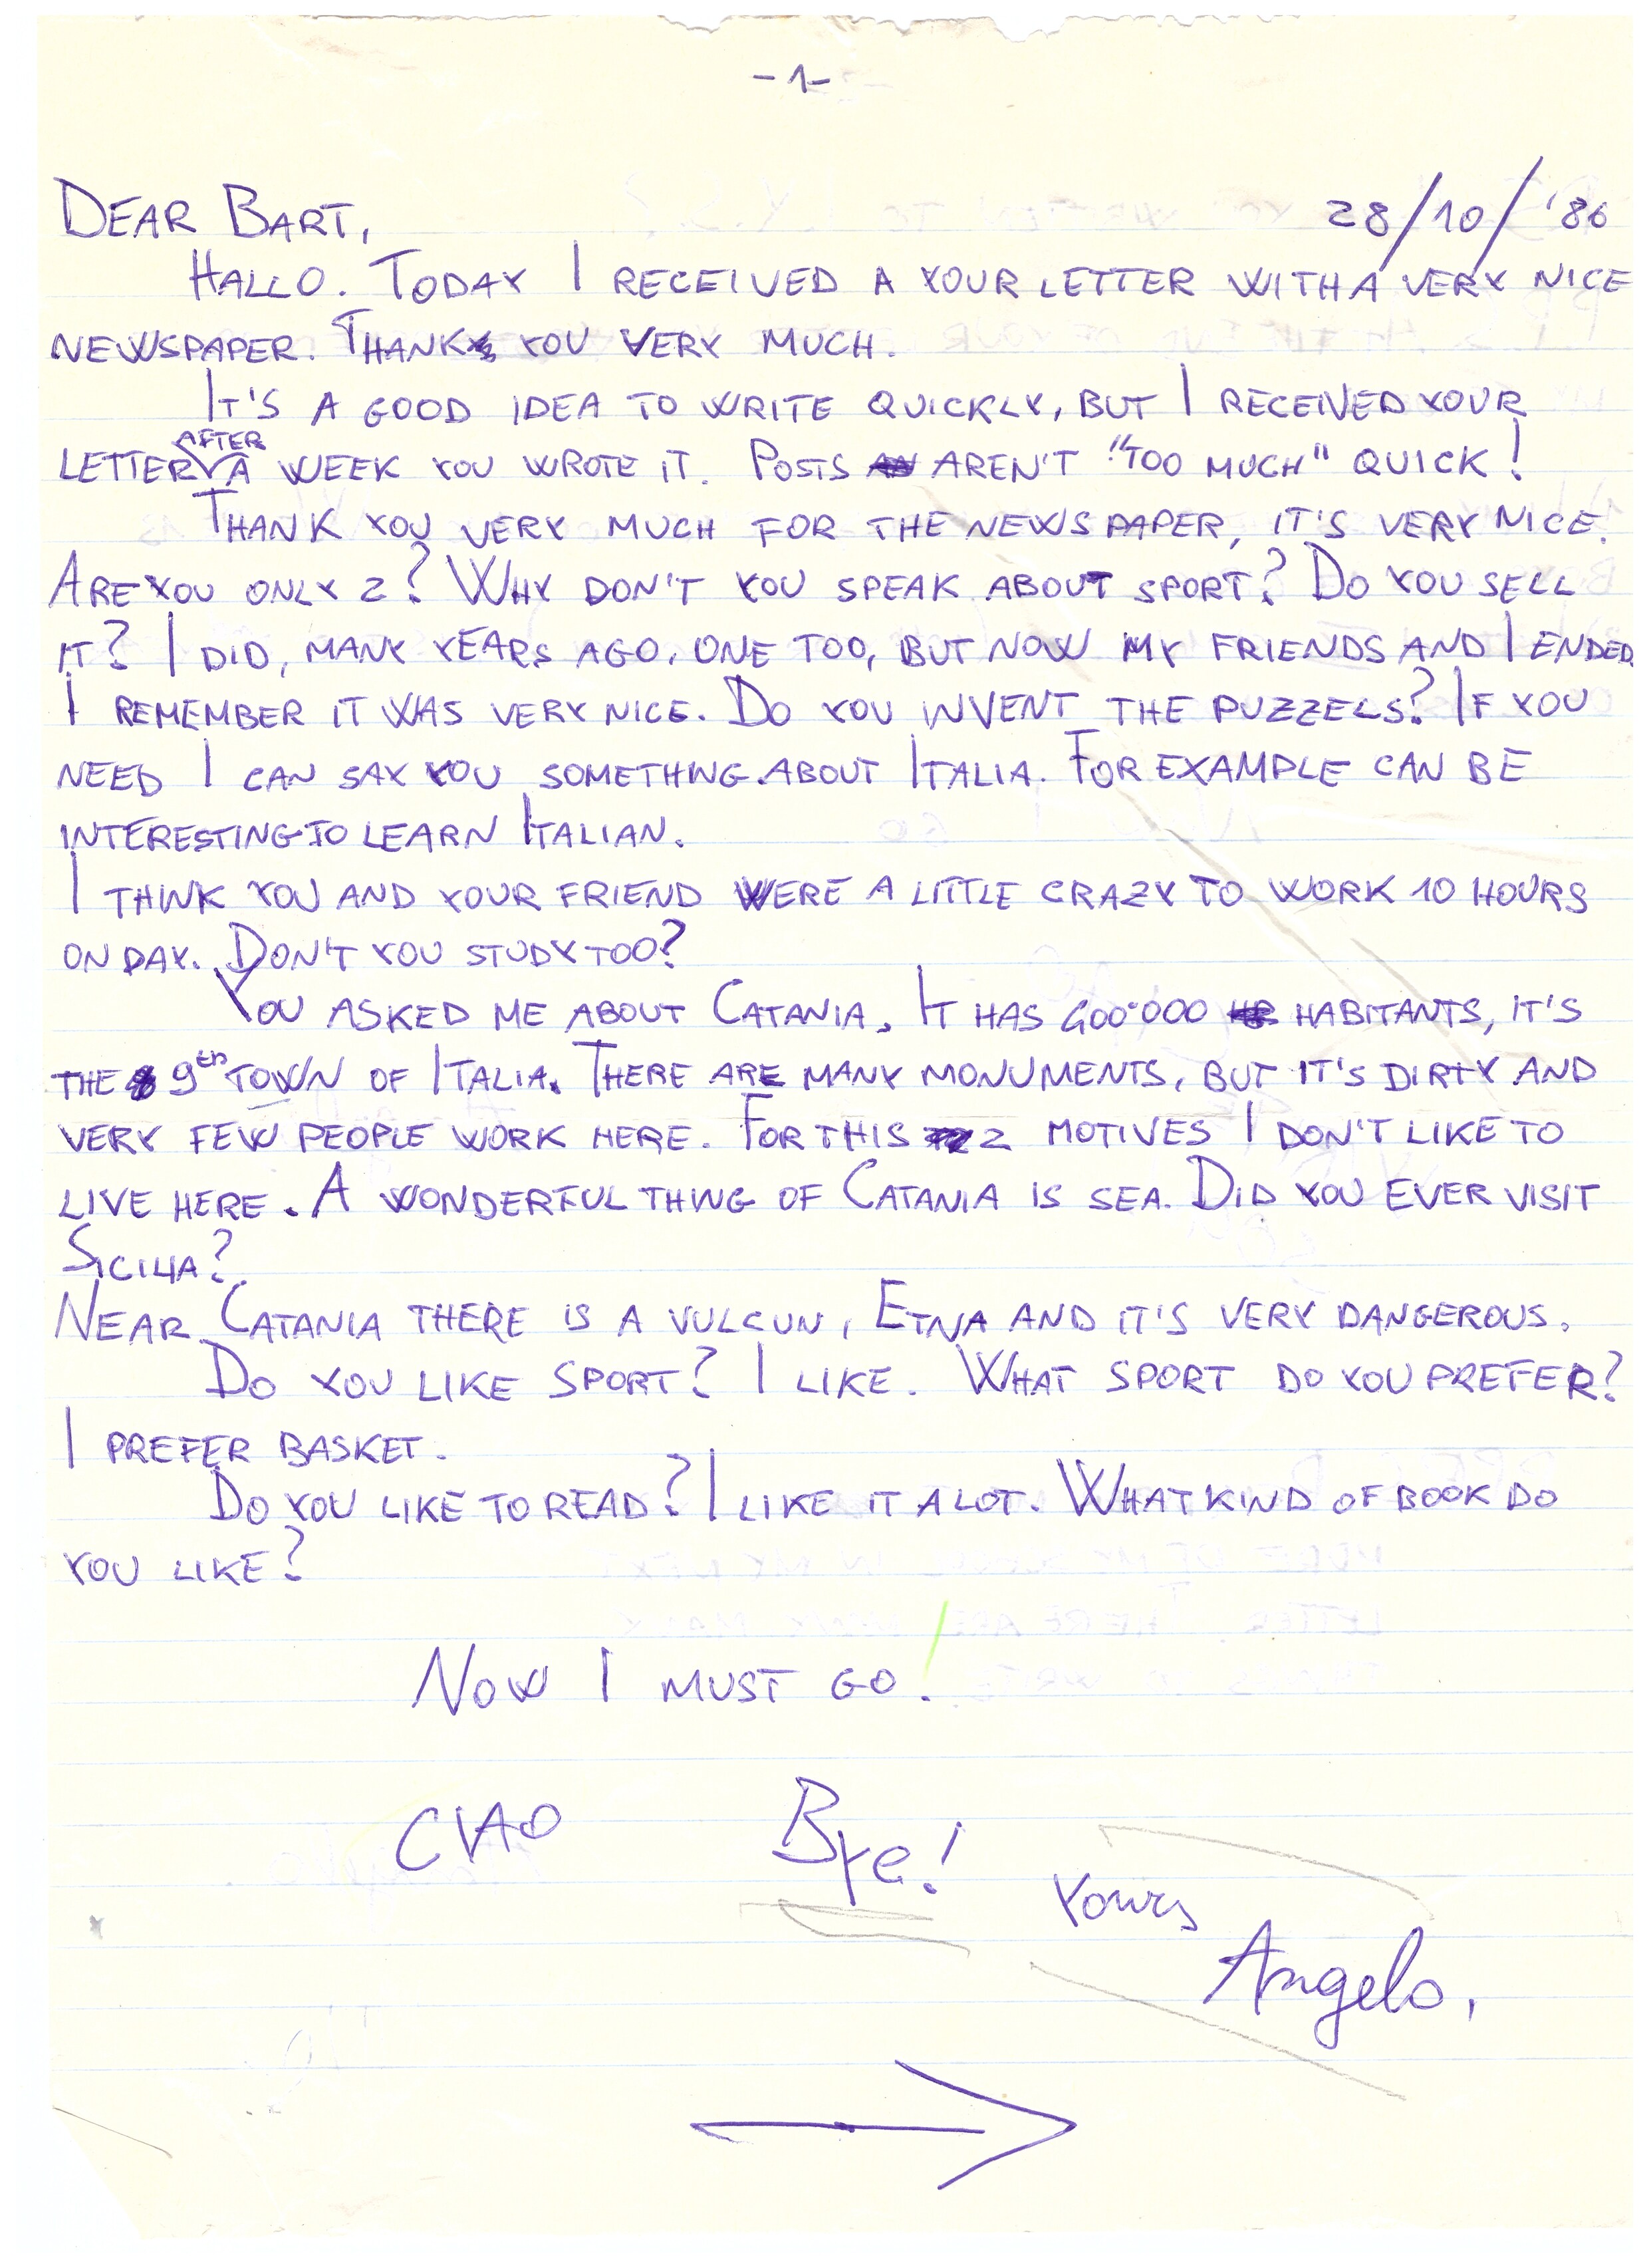 -1-
DEAR BART, 28/10/'86
HALLO. TODAY I RECEIVED A YOUR LETTER WITH A VERY NICE
NEWSPAPER. THANK YOU VERY MUCH.
IT'S A GOOD IDEA TO WRITE QUICKLY, BUT I RECEIVED YOUR
LETTER AFTER A WEEK YOU WROTE IT. POSTS AREN'T "TOO MUCH" QUICK!
THANK YOU VERY MUCH FOR THE NEWSPAPER, IT'S VERY NICE.
ARE YOU ONLY 2? WHY DON'T YOU SPEAK ABOUT SPORT? DO YOU SELL
IT? I DID, MANY YEARS AGO, ONE TOO, BUT NOW MY FRIENDS AND I ENDED.
I REMEMBER IT WAS VERY NICE. DO YOU INVENT THE PUZZELS? IF YOU
NEED I CAN SAY YOU SOMETHING ABOUT ITALIA. FOR EXAMPLE CAN BE
INTERESTING TO LEARN ITALIAN.
I THINK YOU AND YOUR FRIEND WERE A LITTLE CRAZY TO WORK 10 HOURS
ON DAY. DON'T YOU STUDY TOO?
YOU ASKED ME ABOUT CATANIA. IT HAS 600.000 HABITANTS, IT'S
THE 9th TOWN OF ITALIA. THERE ARE MANY MONUMENTS, BUT IT'S DIRTY AND
VERY FEW PEOPLE WORK HERE. FOR THIS 2 MOTIVES I DON'T LIKE TO
LIVE HERE. A WONDERFUL THING OF CATANIA IS SEA. DID YOU EVER VISIT
SICILIA?
NEAR CATANIA THERE IS A VULCUN, ETNA AND IT'S VERY DANGEROUS.
DO YOU LIKE SPORT? I LIKE. WHAT SPORT DO YOU PREFER?
I PREFER BASKET.
DO YOU LIKE TO READ? I LIKE IT A LOT. WHAT KIND OF BOOK DO
YOU LIKE?
NOW I MUST GO!
CIAO Bye!
Yours
Angelo,